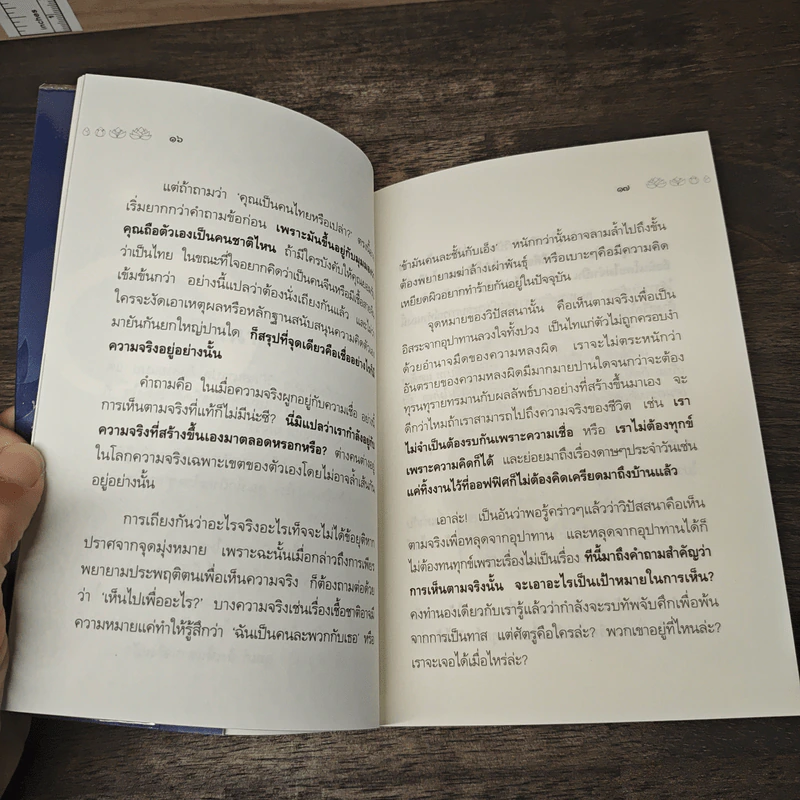 inches
๑๖
แต่ถ้าถามว่า 'คุณเป็นคนไทยหรือเปล่า?'
เริ่มยากกว่าคำถามข้อก่อน เพราะมันขึ้นอยู่กับมุมมอง
คุณถือตัวเองเป็นคนชาติไหน ถ้ามีใครบังคับให้คุณ
ว่าเป็นไทย ในขณะที่ใจอยากคิดว่าเป็นคนจีนหรือมีเชื้อ
เข้มข้นกว่า อย่างนี้แปลว่าต้องนั่งเถียงกันแล้ว
ใครจะงัดเอาเหตุผลหรือหลักฐานสนับสนุนความคิด
มายันกันยกใหญ่ปานใด ก็สรุปที่จุดเดียวคือเชื่ออย่างไร
ความจริงอยู่อย่างนั้น
คำถามคือ ในเมื่อความจริงผูกอยู่กับความเชื่อ อย่างนี้
การเห็นตามจริงที่แท้ก็ไม่มีน่ะซี? นี่มิแปลว่าเรากำลังอยู่กับ
ความจริงที่สร้างขึ้นเองมาตลอดหรอกหรือ? ต่างคนต่างอยู่
ในโลกความจริงเฉพาะเขตของตัวเองโดยไม่อาจล้ำเส้นกัน
อยู่อย่างนั้น
การเถียงกันว่าอะไรจริงอะไรเท็จจะไม่ได้ข้อยุติหาก
ปราศจากจุดมุ่งหมาย เพราะฉะนั้นเมื่อกล่าวถึงการเพียร
พยายามประพฤติตนเพื่อเห็นความจริง ก็ต้องถามต่อด้วย
ว่า 'เห็นไปเพื่ออะไร?' บางความจริงเช่นเรื่องเชื้อชาติอาจมี
ความหมายแค่ทำให้รู้สึกว่า 'ฉันเป็นคนละพวกกับเธอ' หรือ
๑๗
'ข้ามันคนละชั้นกับเอ็ง' หนักกว่านั้นอาจลามล้ำไปถึงขั้น
ต้องพยายามฆ่าล้างเผ่าพันธุ์ หรือเบาะๆคือมีความคิด
เหยียดผิวอยากทำร้ายกันอยู่ในปัจจุบัน
จุดหมายของวิปัสสนานั้น คือเห็นตามจริงเพื่อเป็น
อิสระจากอุปาทานลวงใจทั้งปวง เป็นไทแก่ตัวไม่ถูกครอบงำ
ด้วยอำนาจมืดของความหลงผิด เราจะไม่ตระหนักว่า
อันตรายของความหลงผิดมีมากมายปานใดจนกว่าจะต้อง
ทุรนทุรายทรมานกับผลลัพธ์บางอย่างที่สร้างขึ้นมาเอง จะ
ดีกว่าไหมถ้าเราสามารถไปถึงความจริงของชีวิต เช่น เรา
ไม่จำเป็นต้องรบกันเพราะความเชื่อ หรือ เราไม่ต้องทุกข์
เพราะความคิดก็ได้ และย่อยมาถึงเรื่องดาษๆประจำวันเช่น
แค่ทิ้งงานไว้ที่ออฟฟิศก็ไม่ต้องคิดเครียดมาถึงบ้านแล้ว
เอาล่ะ! เป็นอันว่าพอรู้คร่าวๆแล้วว่าวิปัสสนาคือเห็น
ตามจริงเพื่อหลุดจากอุปาทาน และหลุดจากอุปาทานได้ก็
ไม่ต้องทนทุกข์เพราะเรื่องไม่เป็นเรื่อง ทีนี้มาถึงคำถามสำคัญว่า
การเห็นตามจริงนั้น จะเอาอะไรเป็นเป้าหมายในการเห็น?
คงทำนองเดียวกับเรารู้แล้วว่ากำลังจะรบทัพจับศึกเพื่อพ้น
จากการเป็นทาส แต่ศัตรูคือใครล่ะ? พวกเขาอยู่ที่ไหนล่ะ?
เราจะเจอได้เมื่อไหร่ล่ะ?